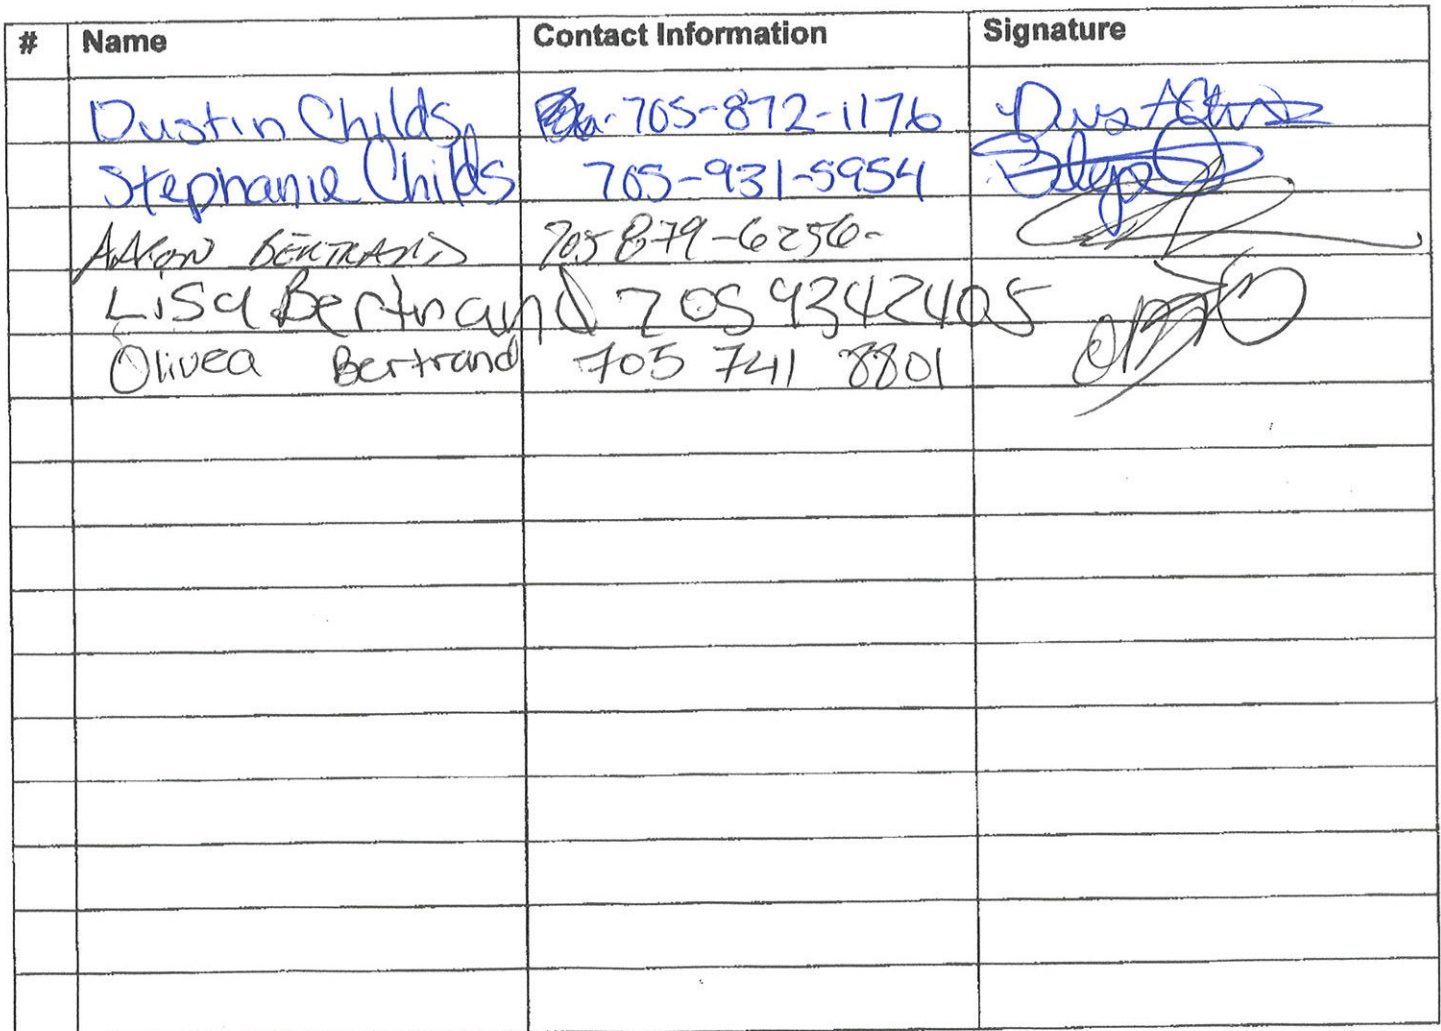 # Name Contact Information Signature
Dustin Childs 705-872-1176
Stephanie Childs 705-931-5954
AARON BERTRAND 705 879-6256-
Lisa Bertrand 705 934 2405
Olivea Bertrand 705 741 8801